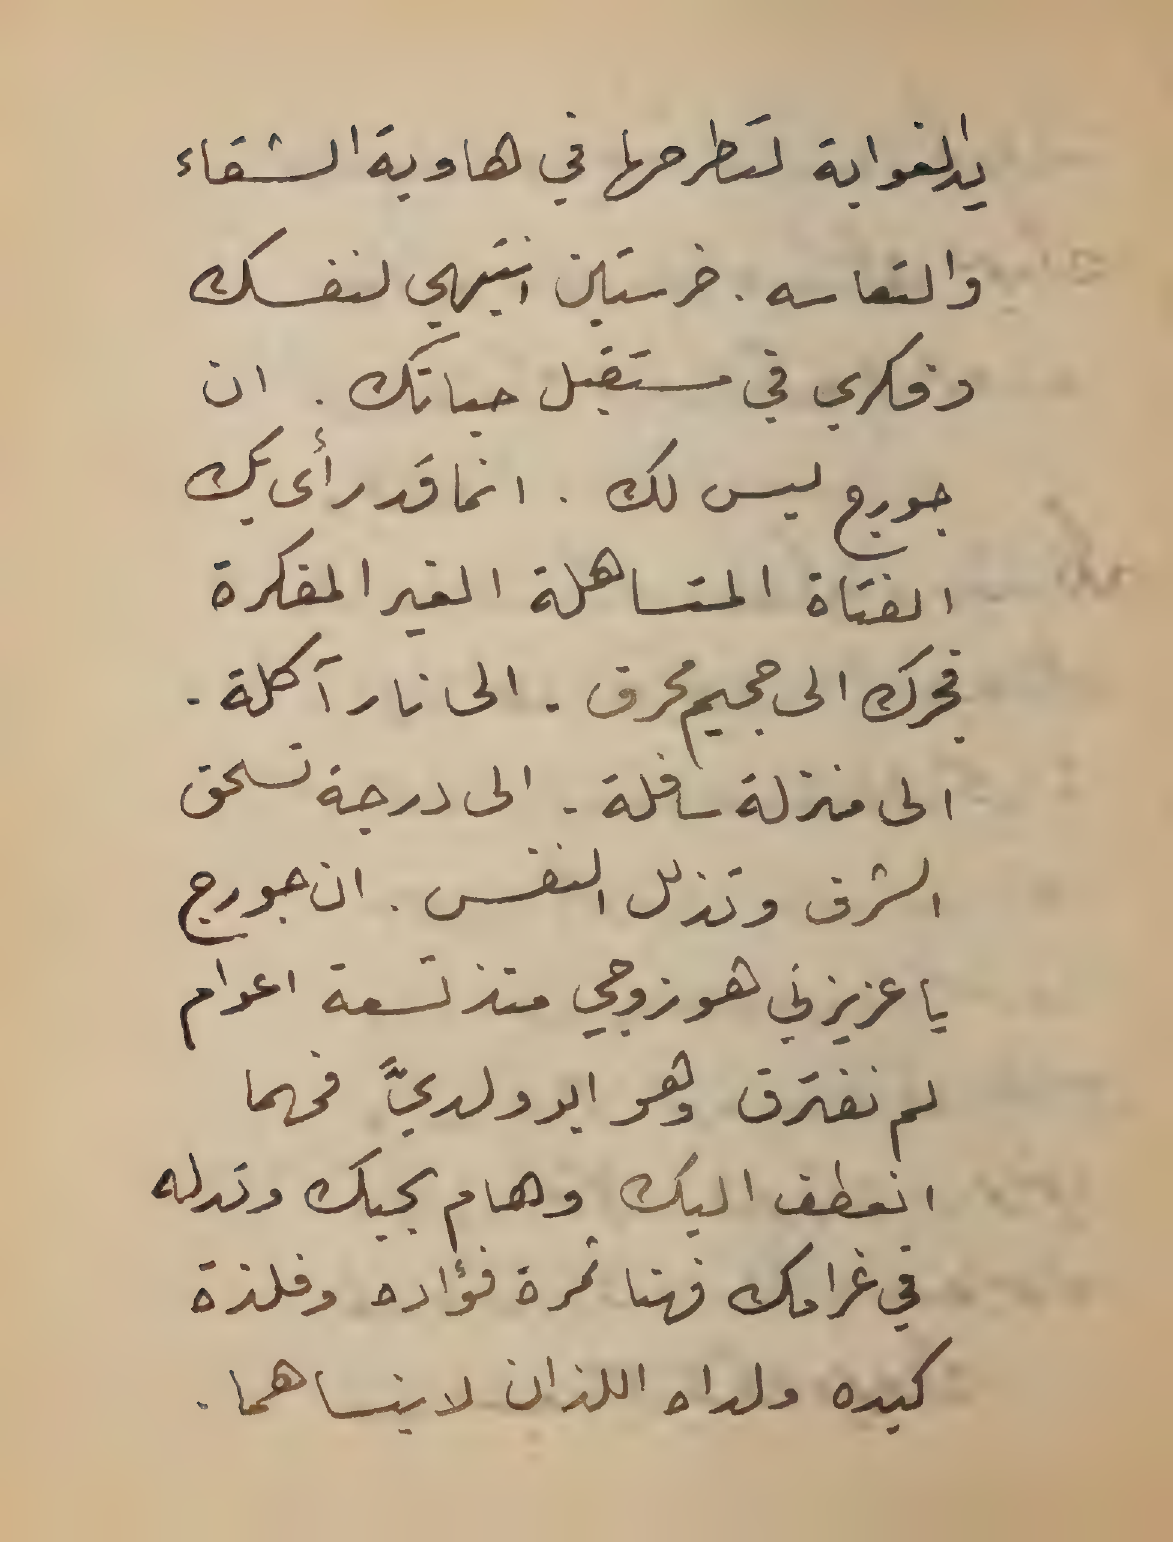 يد الغواية لتطرحها في هاوية الشقاء
والتعاسه . خرستين انتبهي لنفسك
وفكري في مستقبل حياتك . ان
جورج ليس لك . انما قد رأى بك
الفتاة المتساهلة الغير المفكرة
فجرك الى جحيم محرق . الى نار آكلة .
الى منزلة سافلة . الى درجة تسحق
الشرف وتذلل النفس . ان جورج
يا عزيزتي هو زوجي منذ تسعة اعوام
لم نفترق وهو ابو ولديَّ فمهما
انعطف اليك وهام بحبك وتدله
في غرامك فهنا ثمرة فؤاده وفلذة
كبده ولداه اللذان لا ينساهما .